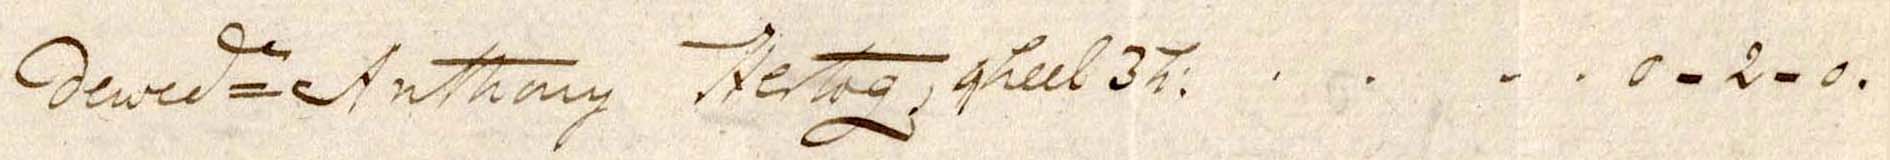 dewed.e Anthony Hertog, gheel 3 h: . . . . 0 - 2 - 0.